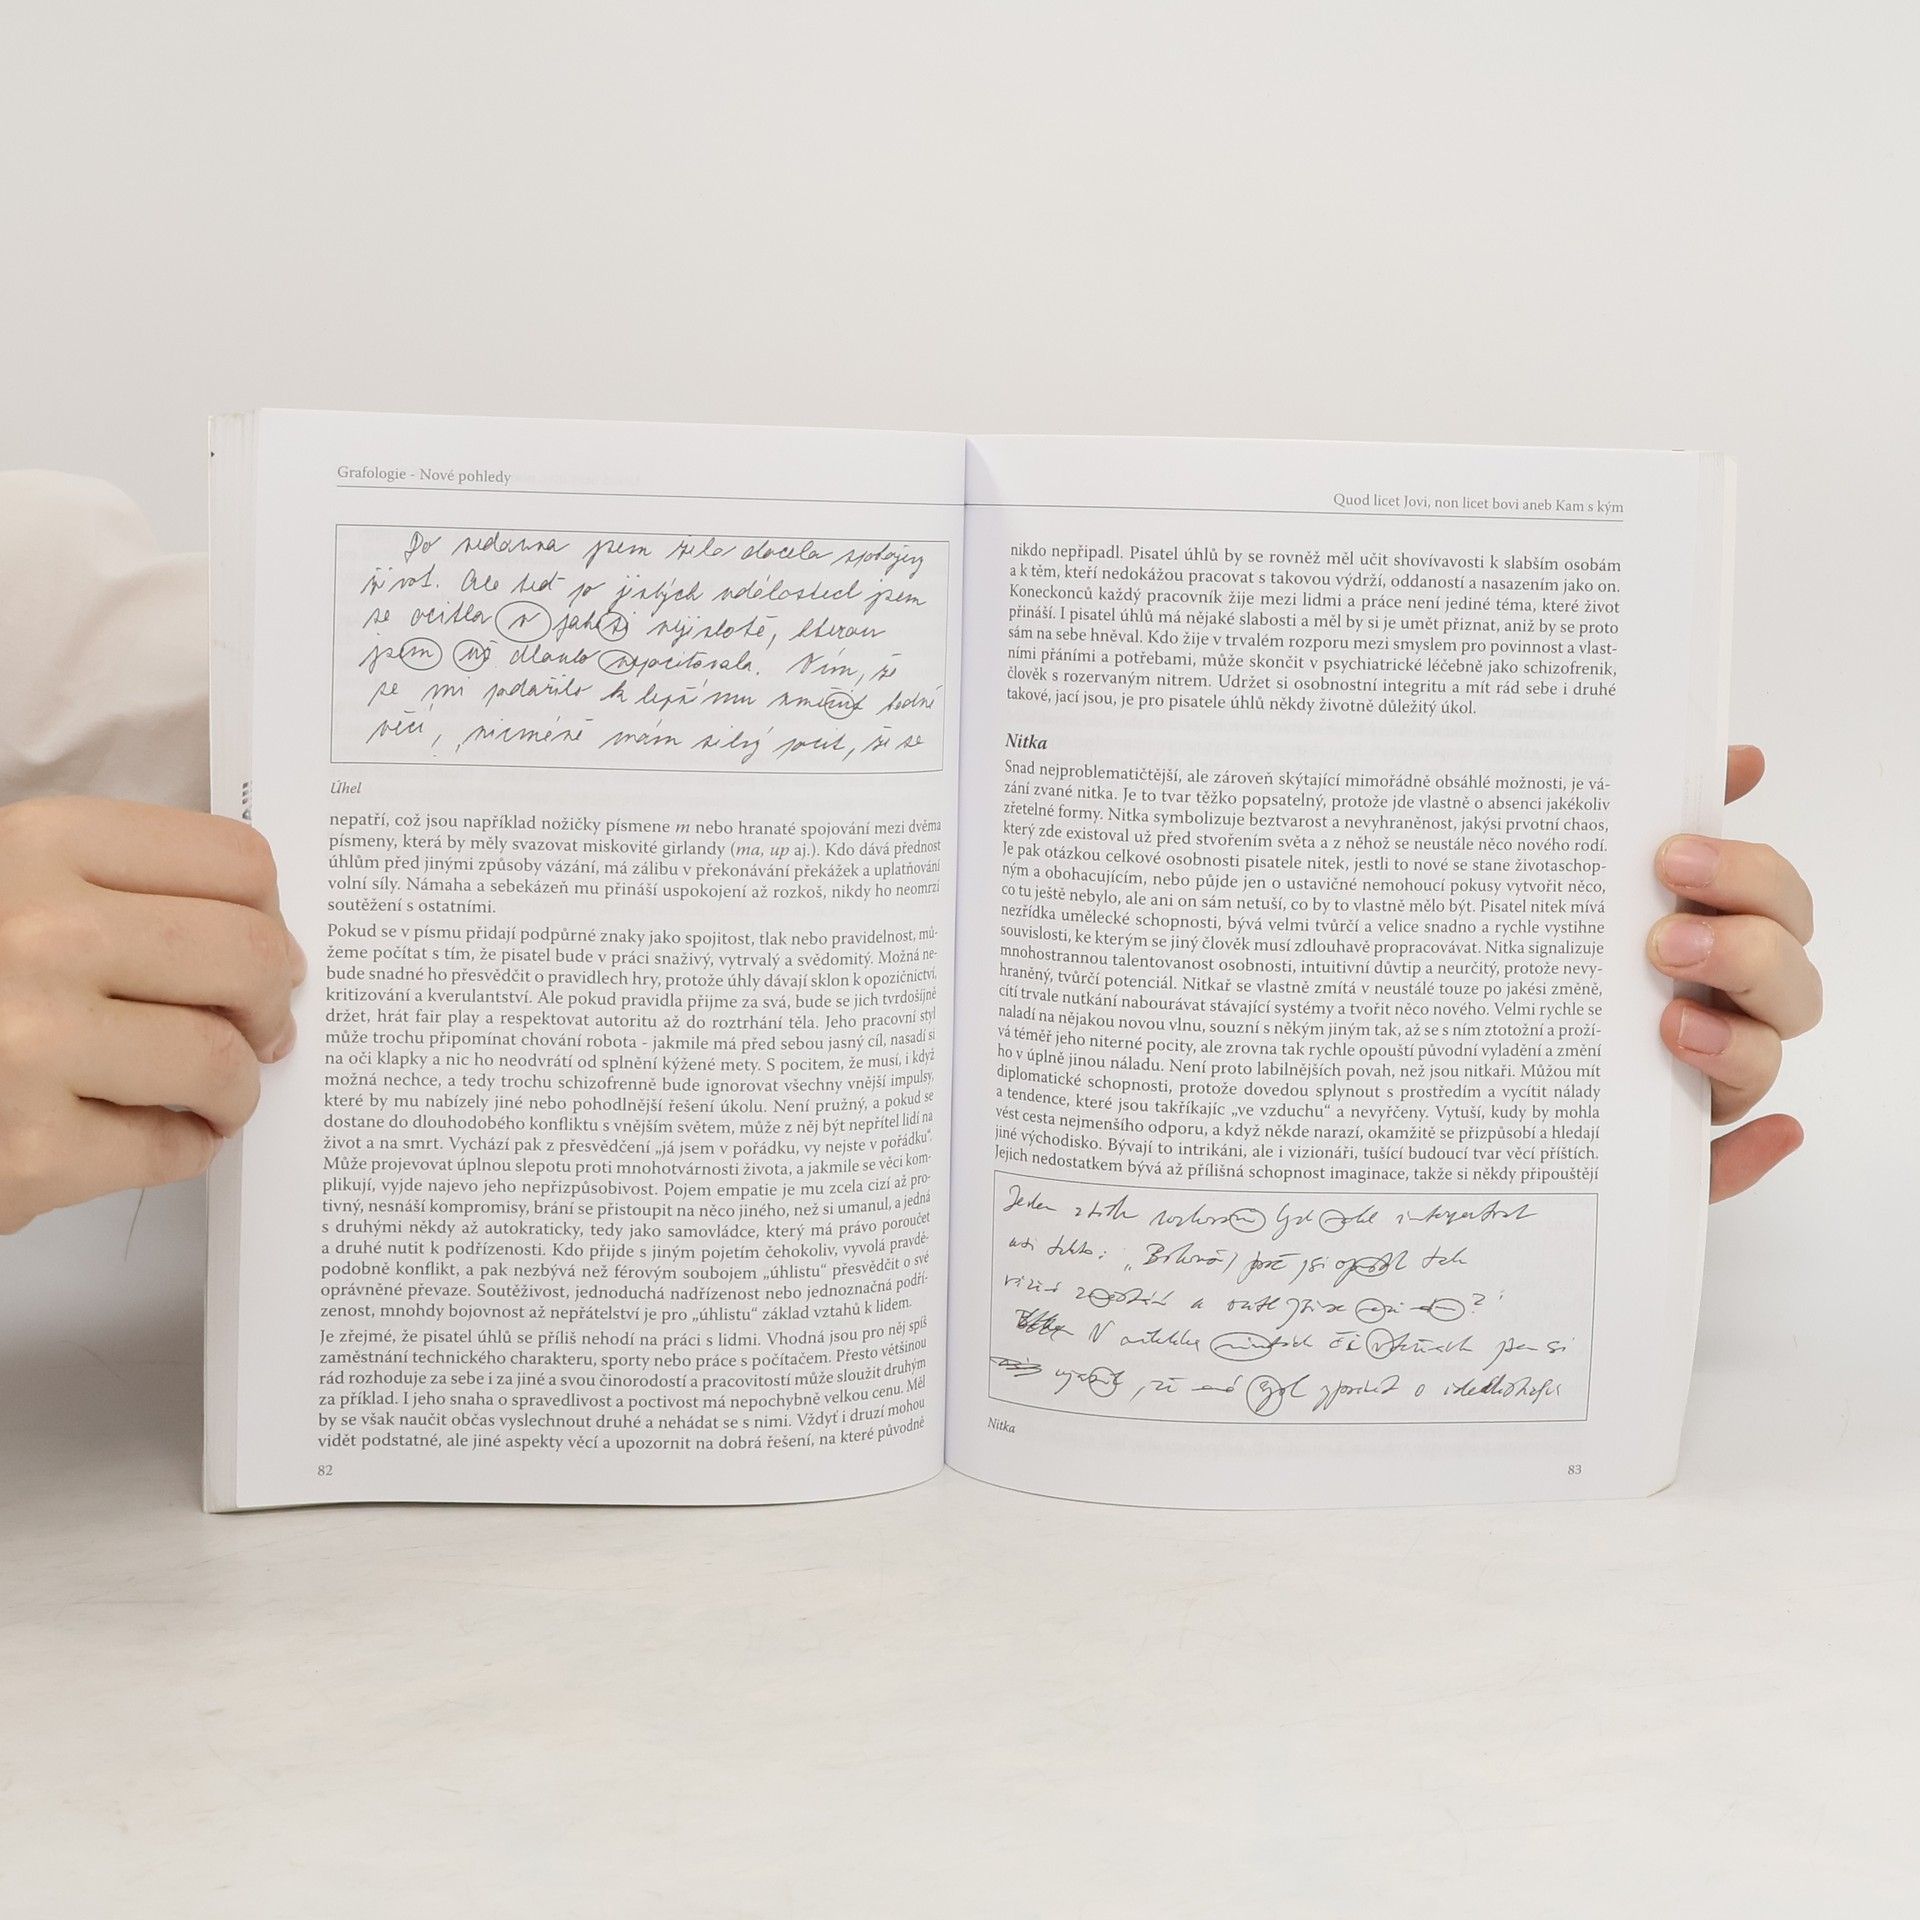 Grafologie - Nové pohledy
Do nedávna jsem žila docela spokojený
život. Ale teď po jistých událostech jsem
se ocitla v jakési nejistotě, kterou
jsem už dlouho nepociťovala. Vím, že
se mi podařilo k lepšímu změnit hodně
věcí, nicméně mám silný pocit, že se
Úhel
nepatří, což jsou například nožičky písmene m nebo hranaté spojování mezi dvěma
písmeny, která by měly svazovat miskovité girlandy (ma, up aj.). Kdo dává přednost
úhlům před jinými způsoby vázání, má zálibu v překonávání překážek a uplatňování
volní síly. Námaha a sebekázeň mu přináší uspokojení až rozkoš, nikdy ho neomrzí
soutěžení s ostatními.
Pokud se v písmu přidají podpůrné znaky jako spojitost, tlak nebo pravidelnost, mů-
žeme počítat s tím, že pisatel bude v práci snaživý, vytrvalý a svědomitý. Možná ne-
bude snadné ho přesvědčit o pravidlech hry, protože úhly dávají sklon k opozičnictví,
kritizování a kverulantství. Ale pokud pravidla přijme za svá, bude se jich tvrdošíjně
držet, hrát fair play a respektovat autoritu až do roztrhání těla. Jeho pracovní styl
může trochu připomínat chování robota - jakmile má před sebou jasný cíl, nasadí si
na oči klapky a nic ho neodvrátí od splnění kýžené mety. S pocitem, že musí, i když
možná nechce, a tedy trochu schizofrenně bude ignorovat všechny vnější impulsy,
které by mu nabízely jiné nebo pohodlnější řešení úkolu. Není pružný, a pokud se
dostane do dlouhodobého konfliktu s vnějším světem, může z něj být nepřítel lidí na
život a na smrt. Vychází pak z přesvědčení „já jsem v pořádku, vy nejste v pořádku“.
Může projevovat úplnou slepotu proti mnohotvárnosti života, a jakmile se věci kom-
plikují, vyjde najevo jeho nepřizpůsobivost. Pojem empatie je mu zcela cizí až pro-
tivný, nesnáší kompromisy, brání se přistoupit na něco jiného, než si umanul, a jedná
s druhými někdy až autokraticky, tedy jako samovládce, který má právo poroučet
a druhé nutit k podřízenosti. Kdo přijde s jiným pojetím čehokoliv, vyvolá pravdě-
podobně konflikt, a pak nezbývá než férovým soubojem „úhlistu“ přesvědčit o své
oprávněné převaze. Soutěživost, jednoduchá nadřízenost nebo jednoznačná podří-
zenost, mnohdy bojovnost až nepřátelství je pro „úhlistu“ základ vztahů k lidem.
Je zřejmé, že pisatel úhlů se příliš nehodí na práci s lidmi. Vhodná jsou pro něj spíš
zaměstnání technického charakteru, sporty nebo práce s počítačem. Přesto většinou
rád rozhoduje za sebe i za jiné a svou činorodostí a pracovitostí může sloužit druhým
za příklad. I jeho snaha o spravedlivost a poctivost má nepochybně velkou cenu. Měl
by se však naučit občas vyslechnout druhé a nehádat se s nimi. Vždyť i druzí mohou
vidět podstatné, ale jiné aspekty věcí a upozornit na dobrá řešení, na které původně
82
Quod licet Jovi, non licet bovi aneb Kam s kým
nikdo nepřipadl. Pisatel úhlů by se rovněž měl učit shovívavosti k slabším osobám
a k těm, kteří nedokážou pracovat s takovou výdrží, oddaností a nasazením jako on.
Koneckonců každý pracovník žije mezi lidmi a práce není jediné téma, které život
přináší. I pisatel úhlů má nějaké slabosti a měl by si je umět přiznat, aniž by se proto
sám na sebe hněval. Kdo žije v trvalém rozporu mezi smyslem pro povinnost a vlast-
ními přáními a potřebami, může skončit v psychiatrické léčebně jako schizofrenik,
člověk s rozervaným nitrem. Udržet si osobnostní integritu a mít rád sebe i druhé
takové, jací jsou, je pro pisatele úhlů někdy životně důležitý úkol.
Nitka
Snad nejproblematičtější, ale zároveň skýtající mimořádně obsáhlé možnosti, je vá-
zání zvané nitka. Je to tvar těžko popsatelný, protože jde vlastně o absenci jakékoliv
zřetelné formy. Nitka symbolizuje beztvarost a nevyhraněnost, jakýsi prvotní chaos,
který zde existoval už před stvořením světa a z něhož se neustále něco nového rodí.
Je pak otázkou celkové osobnosti pisatele nitek, jestli to nové se stane životaschop-
ným a obohacujícím, nebo půjde jen o ustavičné nemohoucí pokusy vytvořit něco,
co tu ještě nebylo, ale ani on sám netuší, co by to vlastně mělo být. Pisatel nitek mívá
nezřídka umělecké schopnosti, bývá velmi tvůrčí a velice snadno a rychle vystihne
souvislosti, ke kterým se jiný člověk musí zdlouhavě propracovávat. Nitka signalizuje
mnohostrannou talentovanost osobnosti, intuitivní důvtip a neurčitý, protože nevy-
hraněný, tvůrčí potenciál. Nitkař se vlastně zmítá v neustálé touze po jakési změně,
cítí trvale nutkání nabourávat stávající systémy a tvořit něco nového. Velmi rychle se
naladí na nějakou novou vlnu, souzní s někým jiným tak, až se s ním ztotožní a proží-
vá téměř jeho niterné pocity, ale zrovna tak rychle opouští původní vyladění a změní
ho v úplně jinou náladu. Není proto labilnějších povah, než jsou nitkaři. Můžou mít
diplomatické schopnosti, protože dovedou splynout s prostředím a vycítit nálady
a tendence, které jsou takříkajíc „ve vzduchu“ a nevyřčeny. Vytuší, kudy by mohla
vést cesta nejmenšího odporu, a když někde narazí, okamžitě se přizpůsobí a hledají
jiné východisko. Bývají to intrikáni, ale i vizionáři, tušící budoucí tvar věcí příštích.
Jejich nedostatkem bývá až přílišná schopnost imaginace, takže si někdy připouštějí
Jeden z
asi takto: proč jsi opustil tak
a
V či jsem si
, že o
Nitka
83